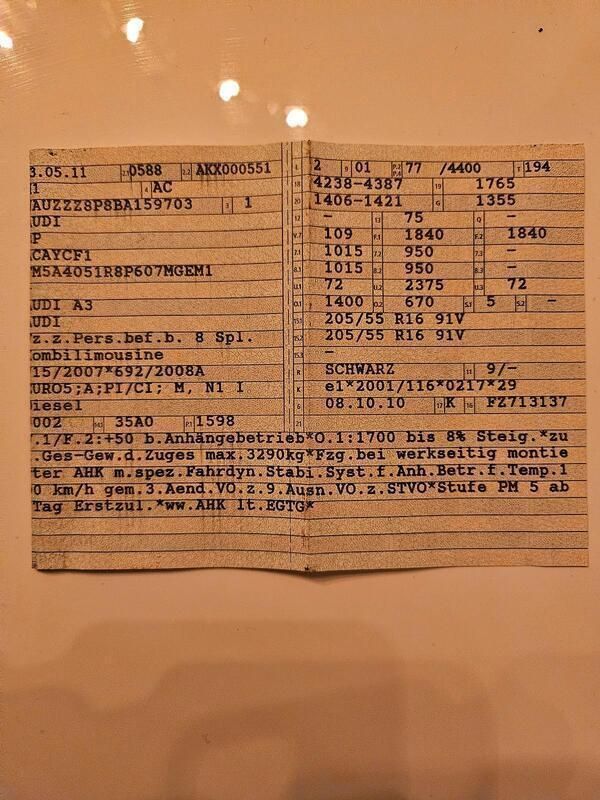 3.05.11 2.1 0588 2.2 AKX000551
1 4 AC
AUZZZ8P8BA159703 3 1
UDI
P
CAYCF1
M5A4051R8P607MGEM1
UDI A3
UDI
z.z.Pers.bef.b. 8 Spl.
ombilimousine
15/2007*692/2008A
URO5;A;PI/CI; M, N1 I
iesel
002 35A0 P.1 1598
2 9 01 P.2 P.4 77 /4400 T 194
18 4238-4387 19 1765
20 1406-1421 G 1355
12 - 13 75 Q -
V.7 109 F.1 1840 F.2 1840
7.1 1015 7.2 950 7.3 -
8.1 1015 8.2 950 8.3 -
U.1 72 U.2 2375 U.3 72
O.1 1400 O.2 670 S.1 5 S.2 -
15.1 205/55 R16 91V
15.2 205/55 R16 91V
15.3 -
R SCHWARZ 11 9/-
K e1*2001/116*0217*29
6 08.10.10 17 K 16 FZ713137
21
.1/F.2:+50 b.Anhängebetrieb*O.1:1700 bis 8% Steig.*zu
.Ges-Gew.d.Zuges max.3290kg*Fzg.bei werkseitig montie
ter AHK m.spez.Fahrdyn.Stabi.Syst.f.Anh.Betr.f.Temp.1
0 km/h gem.3.Aend.VO.z.9.Ausn.VO.z.STVO*Stufe PM 5 ab
Tag Erstzul.*ww.AHK lt.EGTG*